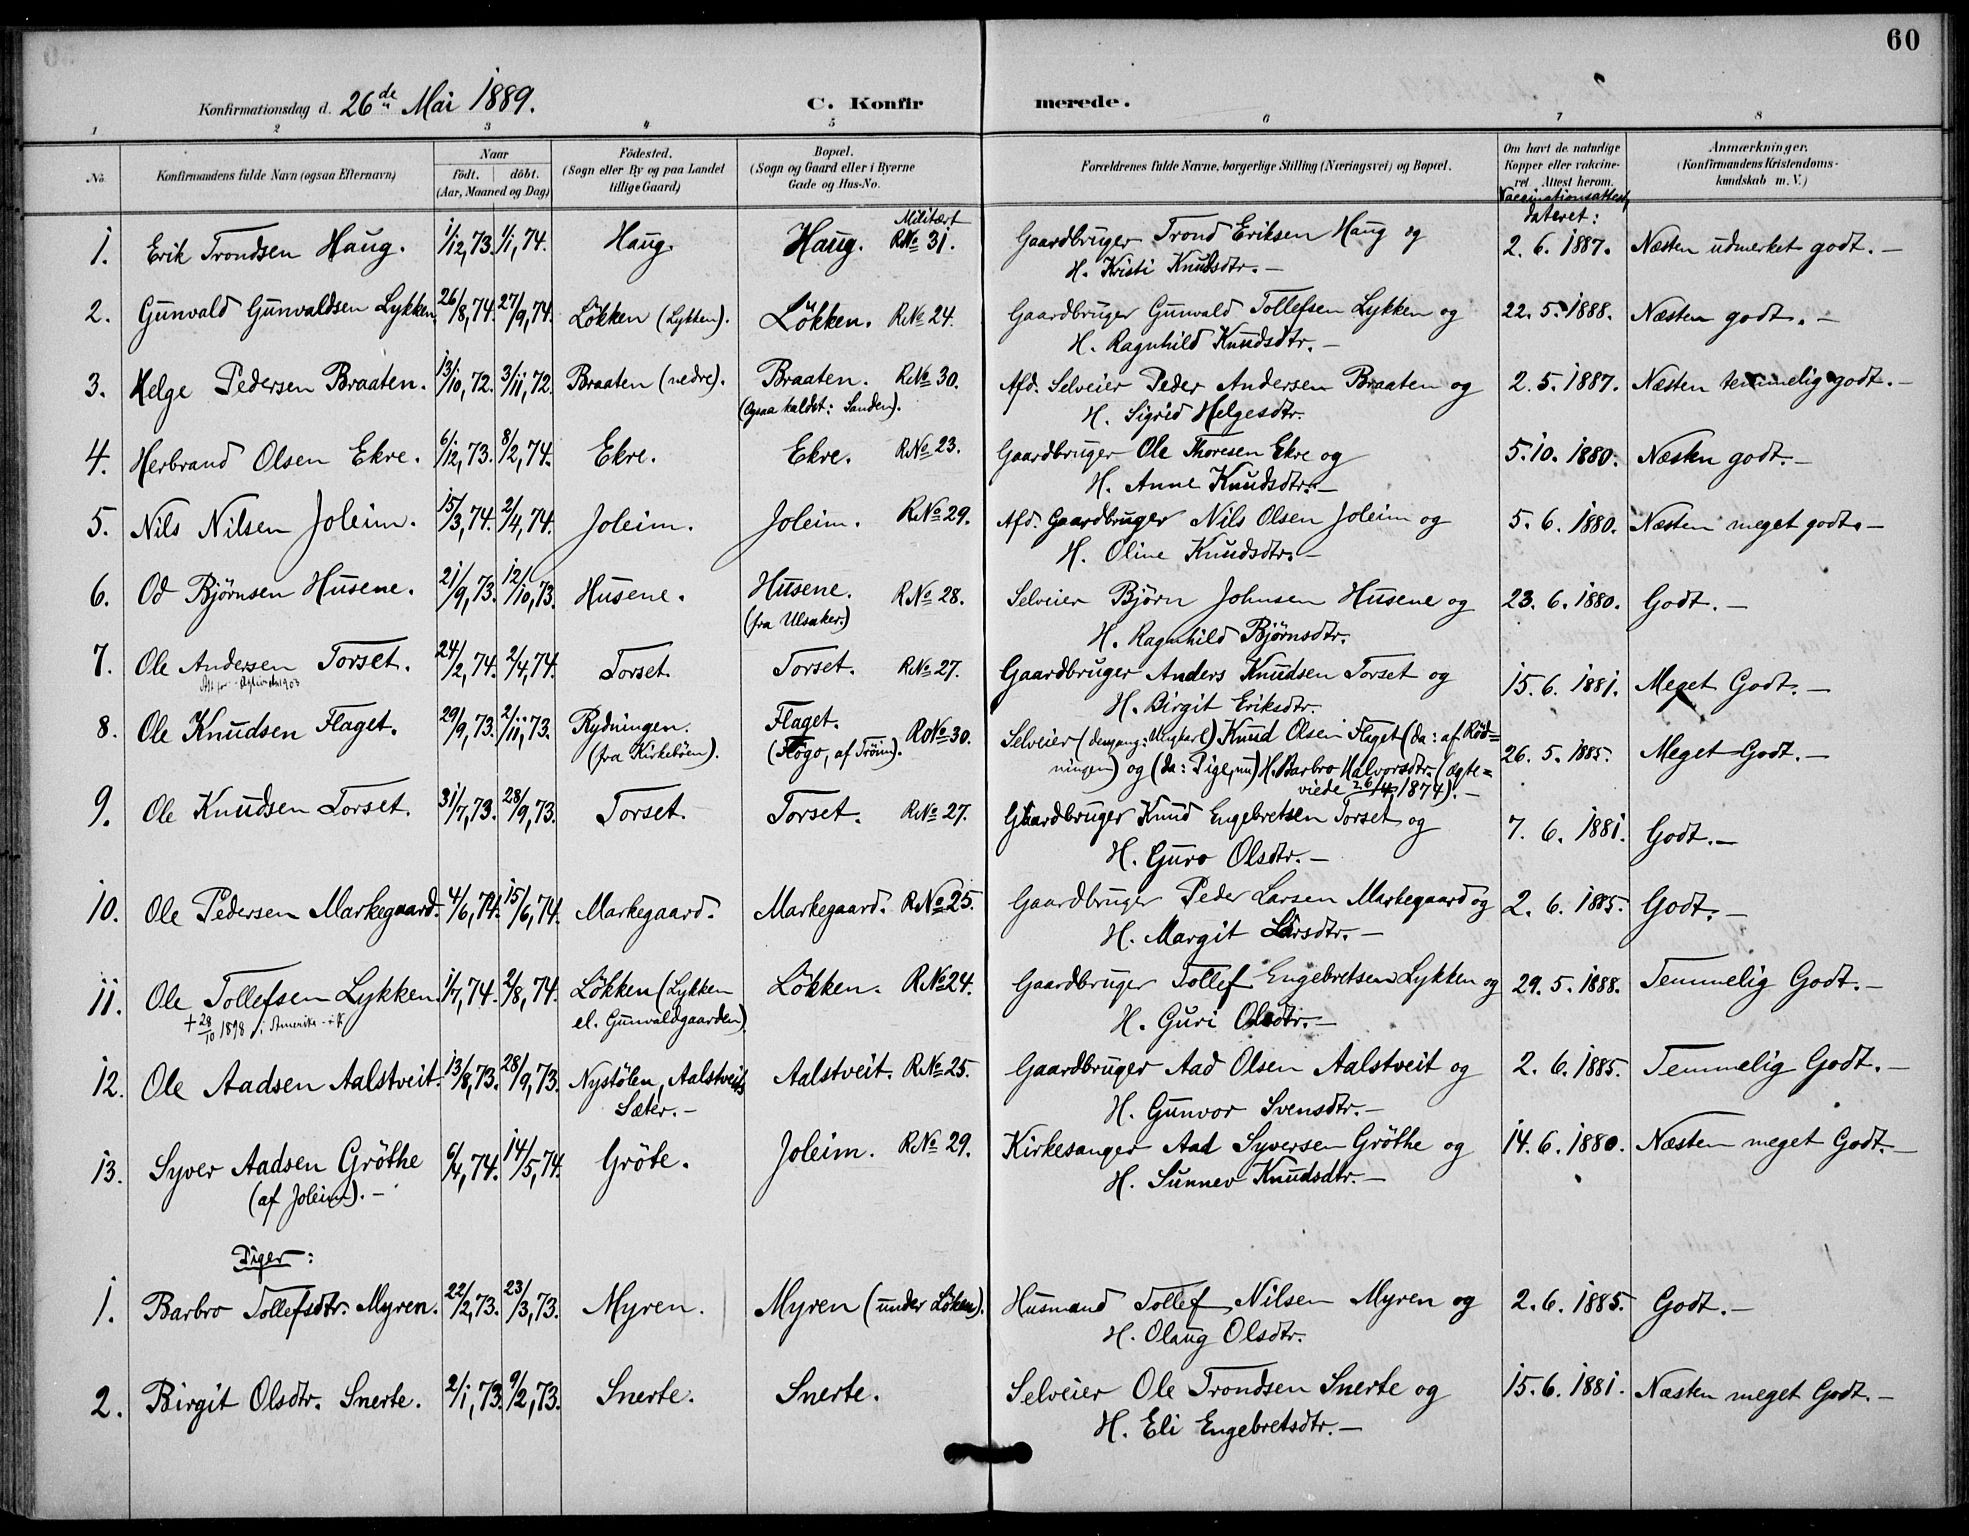 60
Konfirmationsdag d. 26de Mai 1889. C. Konfirmerede.
1 2 3 4 5 6 7 8
No. Konfirmandens fulde Navn (ogsaa Efternavn) Naar Födt. döbt. (Aar, Maaned og Dag) Födested. (Sogn eller By og paa Landet tillige Gaard) Bopæl. (Sogn og Gaard eller i Byerne Gade og Hus-No. Forældrenes fulde Navne, borgerlige Stilling (Næringsvei) og Bopæl. Om havt de naturlige Kopper eller vakcineret. Attest herom. Anmærkninger. (Konfirmandens Kristendomskundskab m. V.)
Militært Vaccinationsattest dateret:
1. Erik Trondsen Haug. 1/12, 73. 1/1, 74. Haug. Haug. RNo 31. Gaardbruger Trond Eriksen Haug og 2. 6. 1887. Næsten udmerket godt. –
H. Kristi Knudsdtr. –
2. Gunvald Gunvaldsen Lykken. 26/8, 74. 27/9, 74. Lökken (Lykken). Lökken. RNo 24. Gaardbruger Gunvald Tollefsen Lykken og 22. 5. 1888. Næsten godt. –
H. Ragnhild Knudsdtr. –
3. Helge Pedersen Braaten. 13/10, 72. 3/11, 72. Braaten (nedre). Braaten. RNo 30. Afd. Selveier Peder Andersen Braaten og 2. 5. 1887. Næsten temmelig godt. –
(Ogsaa kaldet: Sanden). H. Sigrid Helgesdtr.
4. Herbrand Olsen Ekre. 6/12, 73. 8/2, 74. Ekre. Ekre. RNo 23. Gaardbruger Ole Thoresen Ekre og 5. 10. 1880. Næsten godt. –
H. Anne Knudsdtr. –
5. Nils Nilsen Joleim. 15/3, 74. 2/4, 74. Joleim. Joleim. RNo 29. Afd. Gaardbruger Nils Olsen Joleim og 5. 6. 1880. Næsten meget godt. –
H. Oline Knudsdtr. –
6. Od Bjørnsen Husene. 21/9, 73. 12/10, 73. Husene. Husene. RNo 28. Selveier Björn Johnsen Husene og 23. 6. 1880. Godt. –
(fra Ulsaker.) H. Ragnhild Bjørnsdtr.
7. Ole Andersen Torset. 24/2, 74. 2/4, 74. Torset. Torset. RNo 27. Gaardbruger Anders Knudsen Torset og 15. 6. 1881. Meget Godt. –
1903 H. Birgit Eriksdtr.
8. Ole Knudsen Flaget. 29/9, 73. 2/11, 73. Rydningen. Flaget. RNo 30. Selveier (dengang: Ungkarl) Knud Olsen Flaget (da: af Röd= 26. 5. 1885. Meget Godt. –
(fra Kirkeböen). (Flögo, af Tröim). ningen) og (da: Pige, nu) H. Barbro Halvorsdtr. (ægte=
viede 26/4, 1874). –
9. Ole Knudsen Torset. 31/7, 73. 28/9, 73. Torset. Torset. RNo 27. Gaardbruger Knud Engebretsen Torset og 7. 6. 1881. Godt. –
H. Guro Olsdtr. –
10. Ole Pedersen Markegaard. 4/6, 74. 15/6, 74. Markegaard. Markegaard. RNo 25. Gaardbruger Peder Larsen Markegaard og 2. 6. 1885. Godt. –
H. Margit Larsdtr. –
11. Ole Tollefsen Lykken. 1/7, 74. 2/8, 74. Lökken (Lykken Lökken. RNo 24. Gaardbruger Tollef Engebretsen Lykken og 29. 5. 1888. Temmelig Godt. –
+ 28/10 1898 i Amerika el. Gunvaldgaarden). H. Guri Olsdtr. –
12. Ole Aadsen Aalstveit. 13/8, 73. 28/9, 73. Nystölen, Aalstveits Aalstveit. RNo 25. Gaardbruger Aad Olsen Aalstveit og 2. 6. 1885. Temmelig Godt. –
Sæter. – H. Gunvor Svensdtr. –
13. Syver Aadsen Gröthe 6/4, 74. 14/5, 74. Gröte. Joleim. RNo 29. Kirkesanger Aad Syversen Gröthe og 14. 6. 1880. Næsten meget Godt. –
(af Joleim). – H. Sunnev Knudsdtr. –
Piger:
1. Barbro Tollefsdtr. Myren. 22/2, 73. 23/3, 73. Myren. Myren (under Löken). Husmand Tollef Nilsen Myren og 2. 6. 1885. Godt. –
H. Olaug Olsdtr.
2. Birgit Olsdtr. Snerte. 2/1, 73. 9/2, 73. Snerte. Snerte. Selveier Ole Trondsen Snerte og 15. 6. 1881. Næsten meget Godt. –
H. Eli Engebretsdtr. –